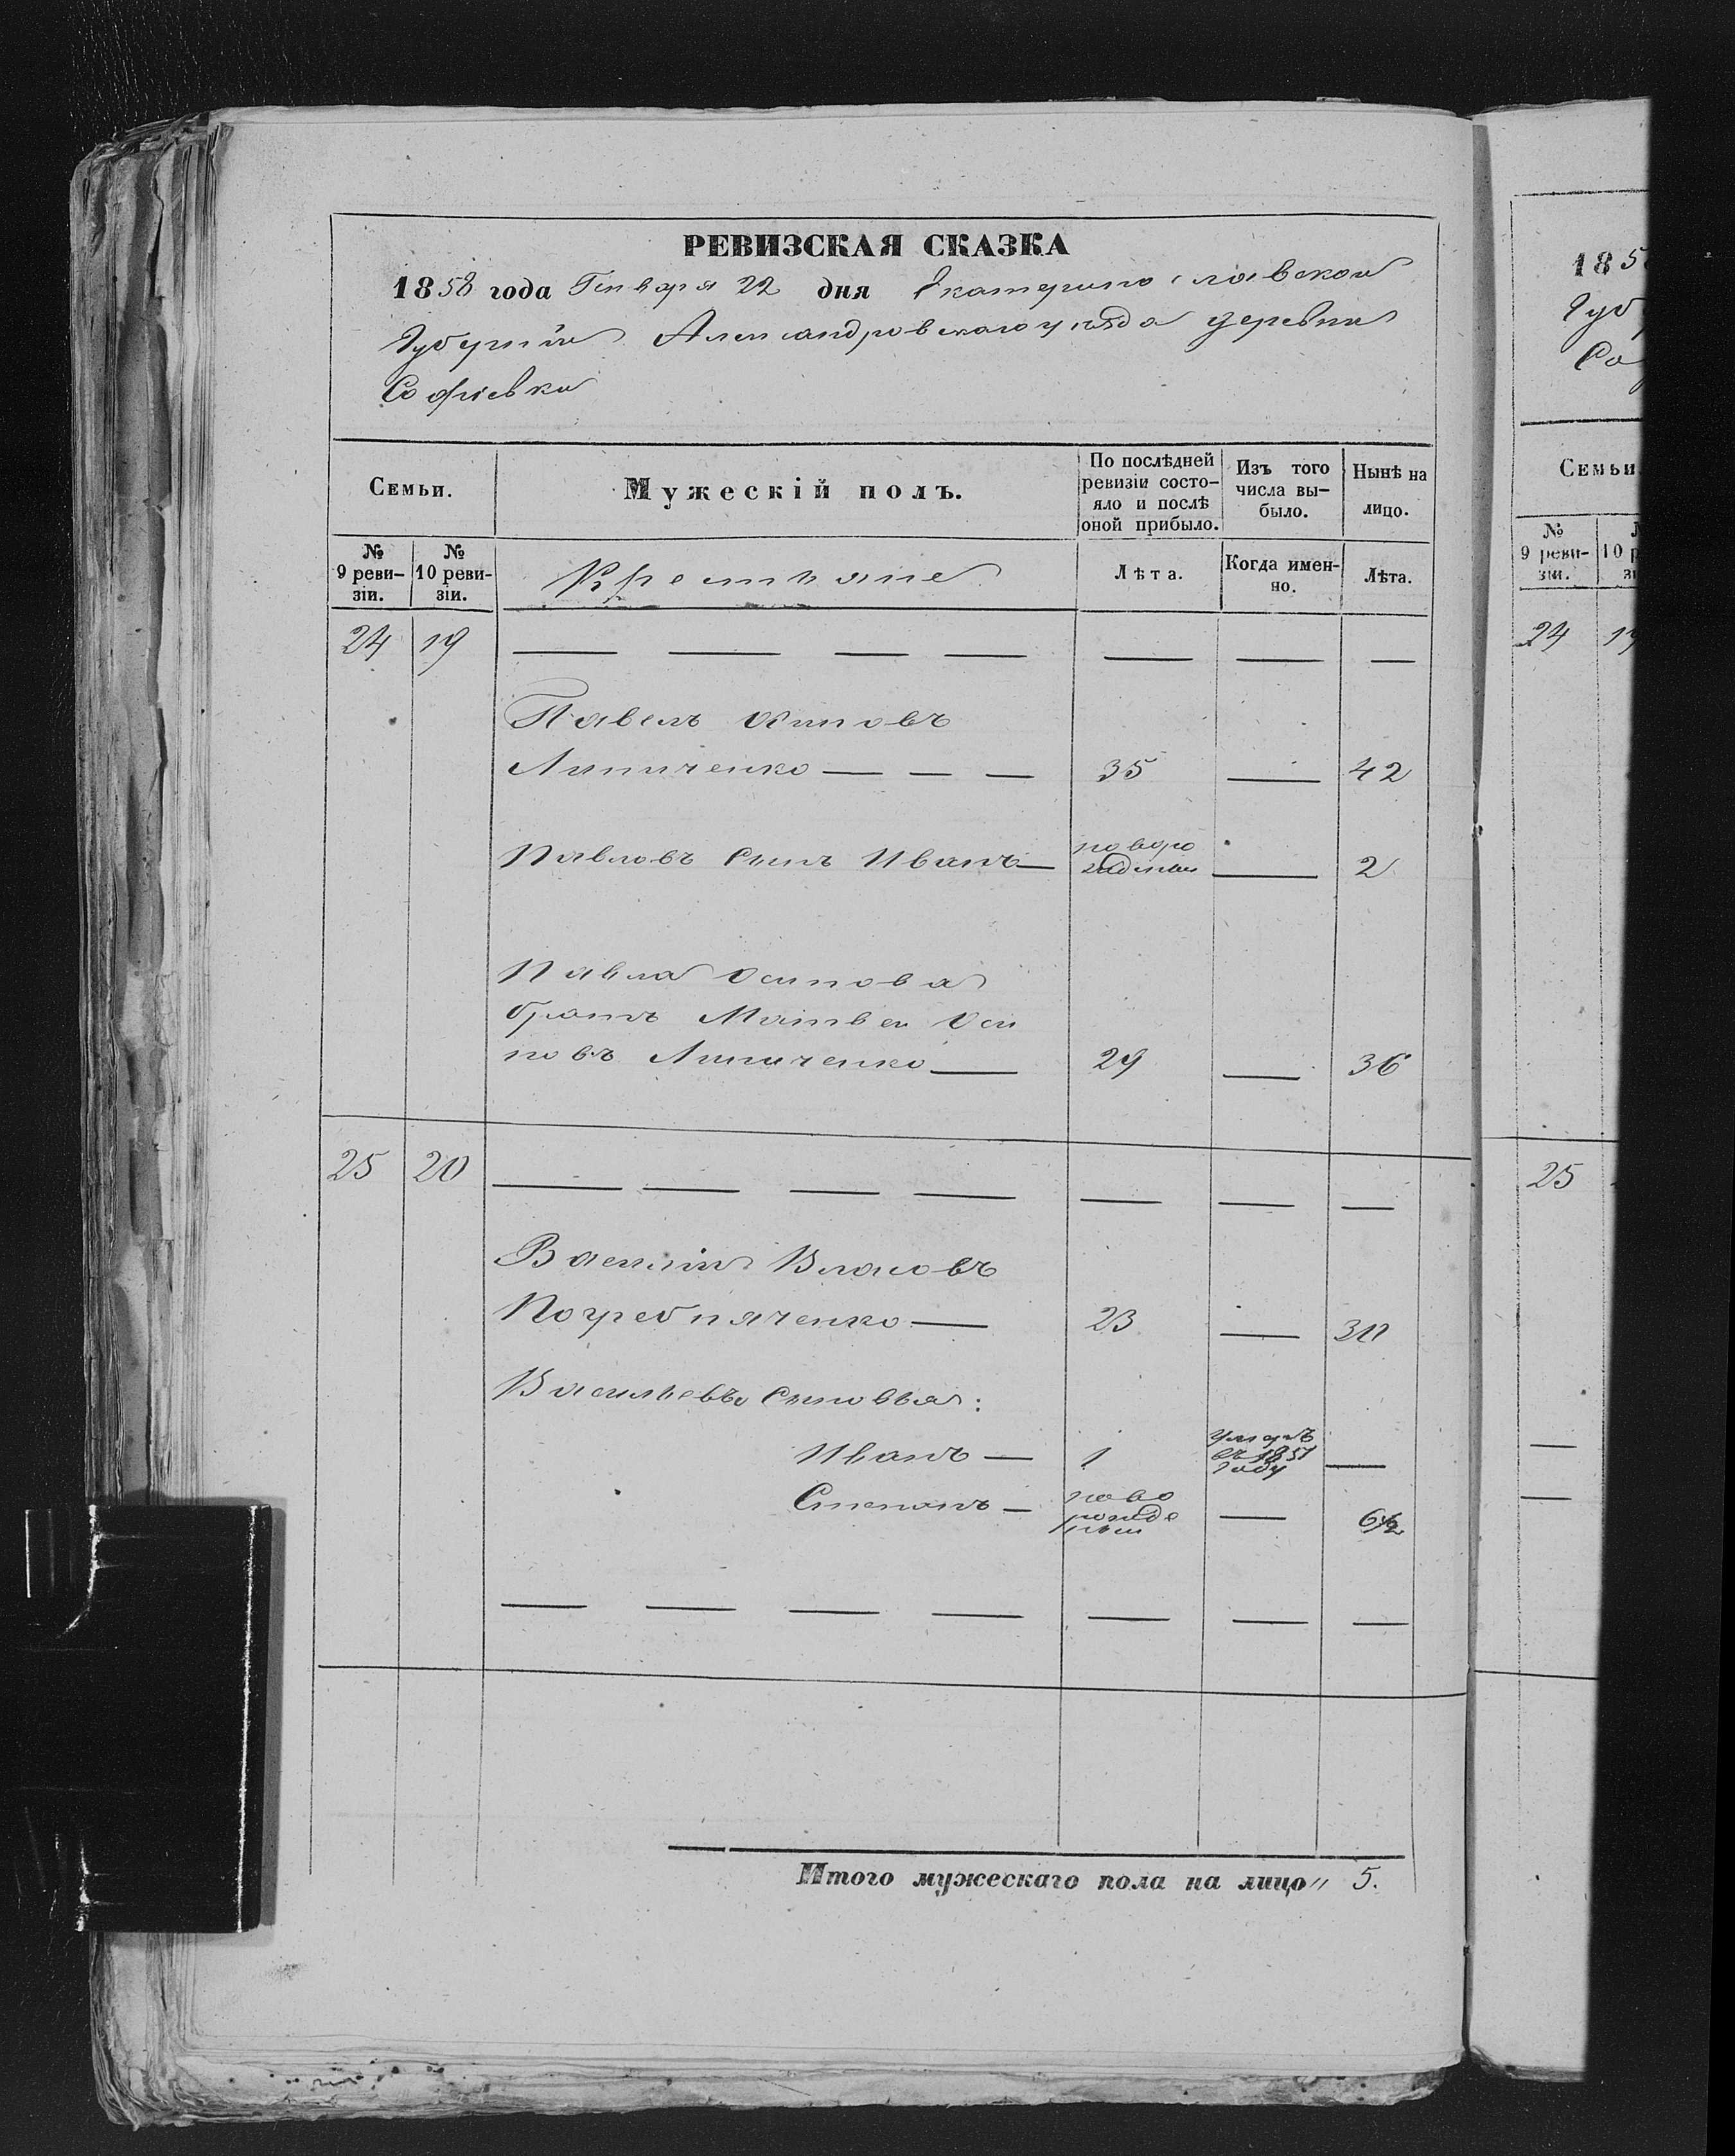 РЕВИЗСКАЯ СКАЗКА
1858 года Генваря 22 дня Екатеринославской
Губерніи Александровскаго уѣзда деревни
Софіевки
Семьи.
Мужескій полъ.
По послѣдней ревизіи состо-
яло и послѣ оной прибыло.
Изъ того числа вы-
было.
Нынѣ на лицо.
№ 9 реви-
зіи.
№ 10 реви-
зіи.
Крестьяне
Лѣта.
Когда имен-
но.
Лѣта.
24 19 — — — — — — —
Павелъ Осиповъ
Липиченко — — — 35 — 42
Павловъ сынъ Иванъ — новоро
жденый — 2
Павла Осипова
братъ Матвей Оси
повъ Липиченко — 29 — 36
25 20 — — — — — — —
Василій Власовъ
Погребняченко — 23 — 30
Васильевы сыновья:
Иванъ — 1 умеръ
въ 1851
году —
Степанъ — ново
рожде
ный — 6½
— — — — — — —
Итого мужескаго пола на лицо „ 5.
185
Губ
Со
Семьи
№ 9 реви-
зіи.
10 р
24 19
25